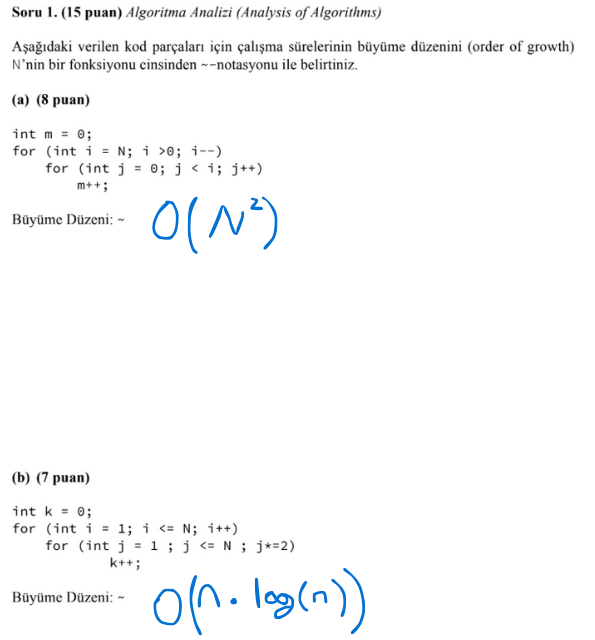 Soru 1. (15 puan) Algoritma Analizi (Analysis of Algorithms)
Aşağıdaki verilen kod parçaları için çalışma sürelerinin büyüme düzenini (order of growth)
N'nin bir fonksiyonu cinsinden ~-notasyonu ile belirtiniz.
(a) (8 puan)
int m = 0;
for (int i = N; i >0; i--)
for (int j = 0; j < i; j++)
m++;
Büyüme Düzeni: ~ O(N²)
(b) (7 puan)
int k = 0;
for (int i = 1; i <= N; i++)
for (int j = 1 ; j <= N ; j*=2)
k++;
Büyüme Düzeni: ~ O(n. log(n))